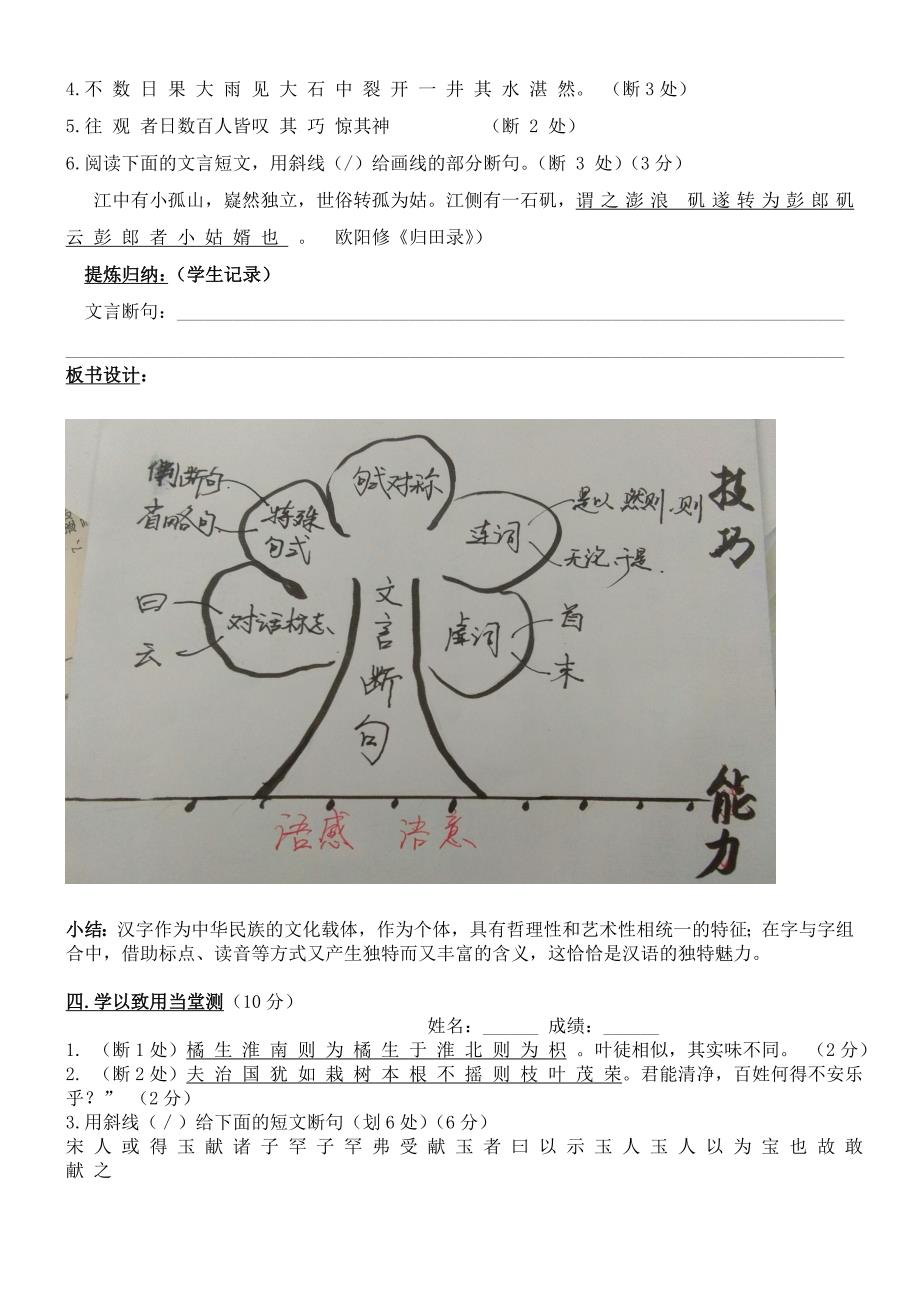 4.不 数 日 果 大 雨 见 大 石 中 裂 开 一 井 其 水 湛 然。 (断3处)
5.往 观 者日数百人皆叹 其 巧 惊其神 (断 2 处)
6.阅读下面的文言短文，用斜线(/)给画线的部分断句。(断 3 处)(3分)
江中有小孤山，嶷然独立，世俗转孤为姑。江侧有一石矶，谓 之 澎 浪 矶 遂 转 为 彭 郎 矶
云 彭 郎 者 小 姑 婿 也 。 欧阳修《归田录》)
提炼归纳:(学生记录)
文言断句:
板书设计:
倒断句
省略句
特殊
句式
句式对称
连词
是以 然则 则
无论 于是
技巧
曰
云
对话标志
文言断句
虚词
首
末
语感 语意
能力
小结: 汉字作为中华民族的文化载体，作为个体，具有哲理性和艺术性相统一的特征; 在字与字组
合中，借助标点、读音等方式又产生独特而又丰富的含义，这恰恰是汉语的独特魅力。
四.学以致用当堂测(10分)
姓名:______ 成绩:______
1. (断1处)橘 生 淮 南 则 为 橘 生 于 淮 北 则 为 枳 。叶徒相似，其实味不同。 (2分)
2. (断2处)夫 治 国 犹 如 栽 树 本 根 不 摇 则 枝 叶 茂 荣。君能清净，百姓何得不安乐
乎?” (2分)
3.用斜线(/)给下面的短文断句(划6处)(6分)
宋 人 或 得 玉 献 诸 子 罕 子 罕 弗 受 献 玉 者 曰 以 示 玉 人 玉 人 以 为 宝 也 故 敢
献 之